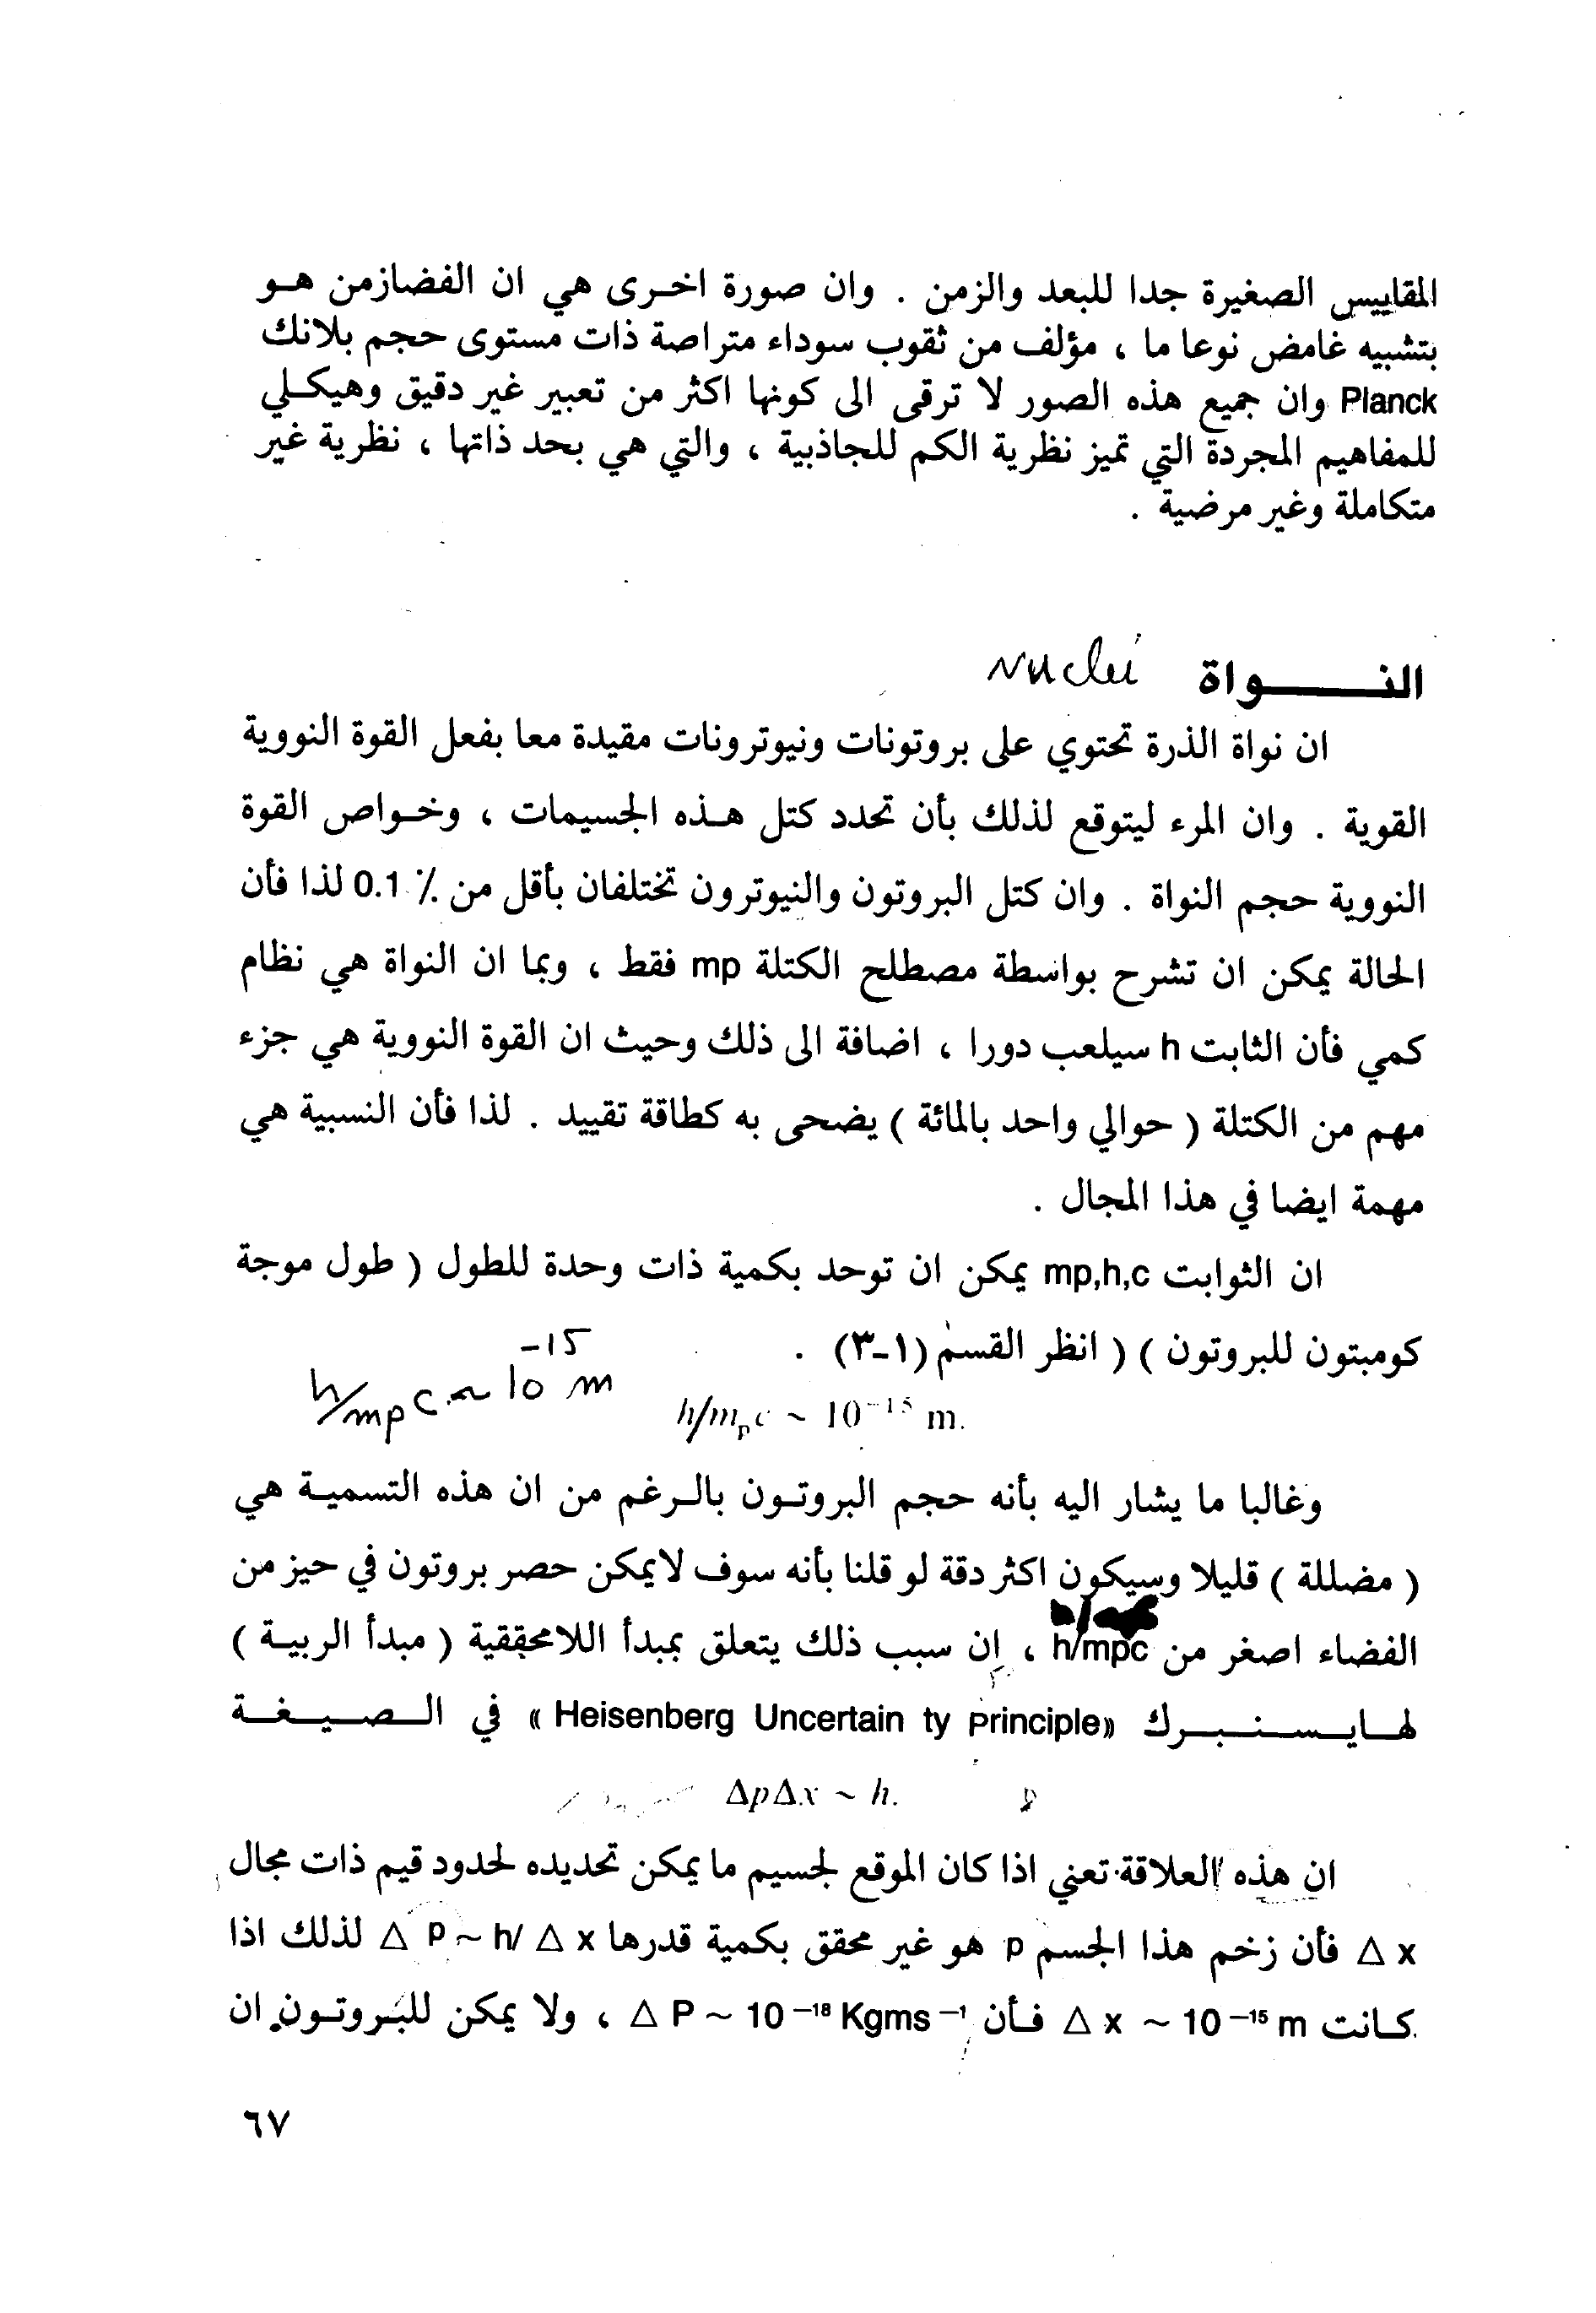 المقاييس الصغيرة جدا للبعد والزمن . وان صورة اخرى هي ان الفضازمن هو
بتشبيه غامض نوعا ما ، مؤلف من ثقوب سوداء متراصة ذات مستوى حجم بلانك
Planck وان جميع هذه الصور لا ترقى الى كونها اكثر من تعبير غير دقيق وهيكلي
للمفاهيم المجردة التي تميز نظرية الكم للجاذبية ، والتي هي بحد ذاتها ، نظرية غير
متكاملة وغير مرضية .
النواة nuclei
ان نواة الذرة تحتوي على بروتونات ونيوترونات مقيدة معا بفعل القوة النووية
القوية . وان المرء ليتوقع لذلك بأن تحدد كتل هذه الجسيمات ، وخواص القوة
النووية حجم النواة . وان كتل البروتون والنيوترون تختلفان بأقل من ٪ 0.1 لذا فأن
الحالة يمكن ان تشرح بواسطة مصطلح الكتلة mp فقط ، وبما ان النواة هي نظام
كمي فأن الثابت h سيلعب دورا ، اضافة الى ذلك وحيث ان القوة النووية هي جزء
مهم من الكتلة ( حوالي واحد بالمائة ) يضحى به كطاقة تقييد . لذا فأن النسبية هي
مهمة ايضا في هذا المجال .
ان الثوابت mp,h,c يمكن ان توحد بكمية ذات وحدة للطول ( طول موجة
كومبتون للبروتون ) ( انظر القسم (١-٣) .
h/mpc ~ 10⁻¹⁵ m
h/mₚc ~ 10⁻¹⁵ m.
وغالبا ما يشار اليه بأنه حجم البروتون بالرغم من ان هذه التسمية هي
( مضللة ) قليلا وسيكون اكثر دقة لو قلنا بأنه سوف لايمكن حصر بروتون في حيز من
الفضاء اصغر من h/mpc ، ان سبب ذلك يتعلق بمبدأ اللامحققية ( مبدأ الريبة )
لهايسنبرك «Heisenberg Uncertain ty principle» في الصيغة
ΔpΔx ~ h.
ان هذه العلاقة تعني اذا كان الموقع لجسيم ما يمكن تحديده لحدود قيم ذات مجال
Δ x فأن زخم هذا الجسم p هو غير محقق بكمية قدرها Δ P ~ h/ Δ x لذلك اذا
كانت Δ x ~ 10 ⁻¹⁵ m فأن Δ P ~ 10 ⁻¹⁸ Kgms ⁻¹ ، ولا يمكن للبروتون ان
٦٧